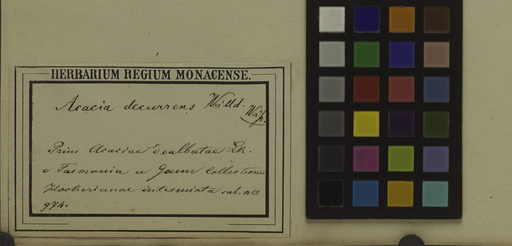 HERBARIUM REGIUM MONACENSE.
Acacia decurrens Willd.
Prius Acaciae dealbatae Lk.
e Tasmania a Gunn Collectionis
Hookerianae intermixta sub. nro
974.